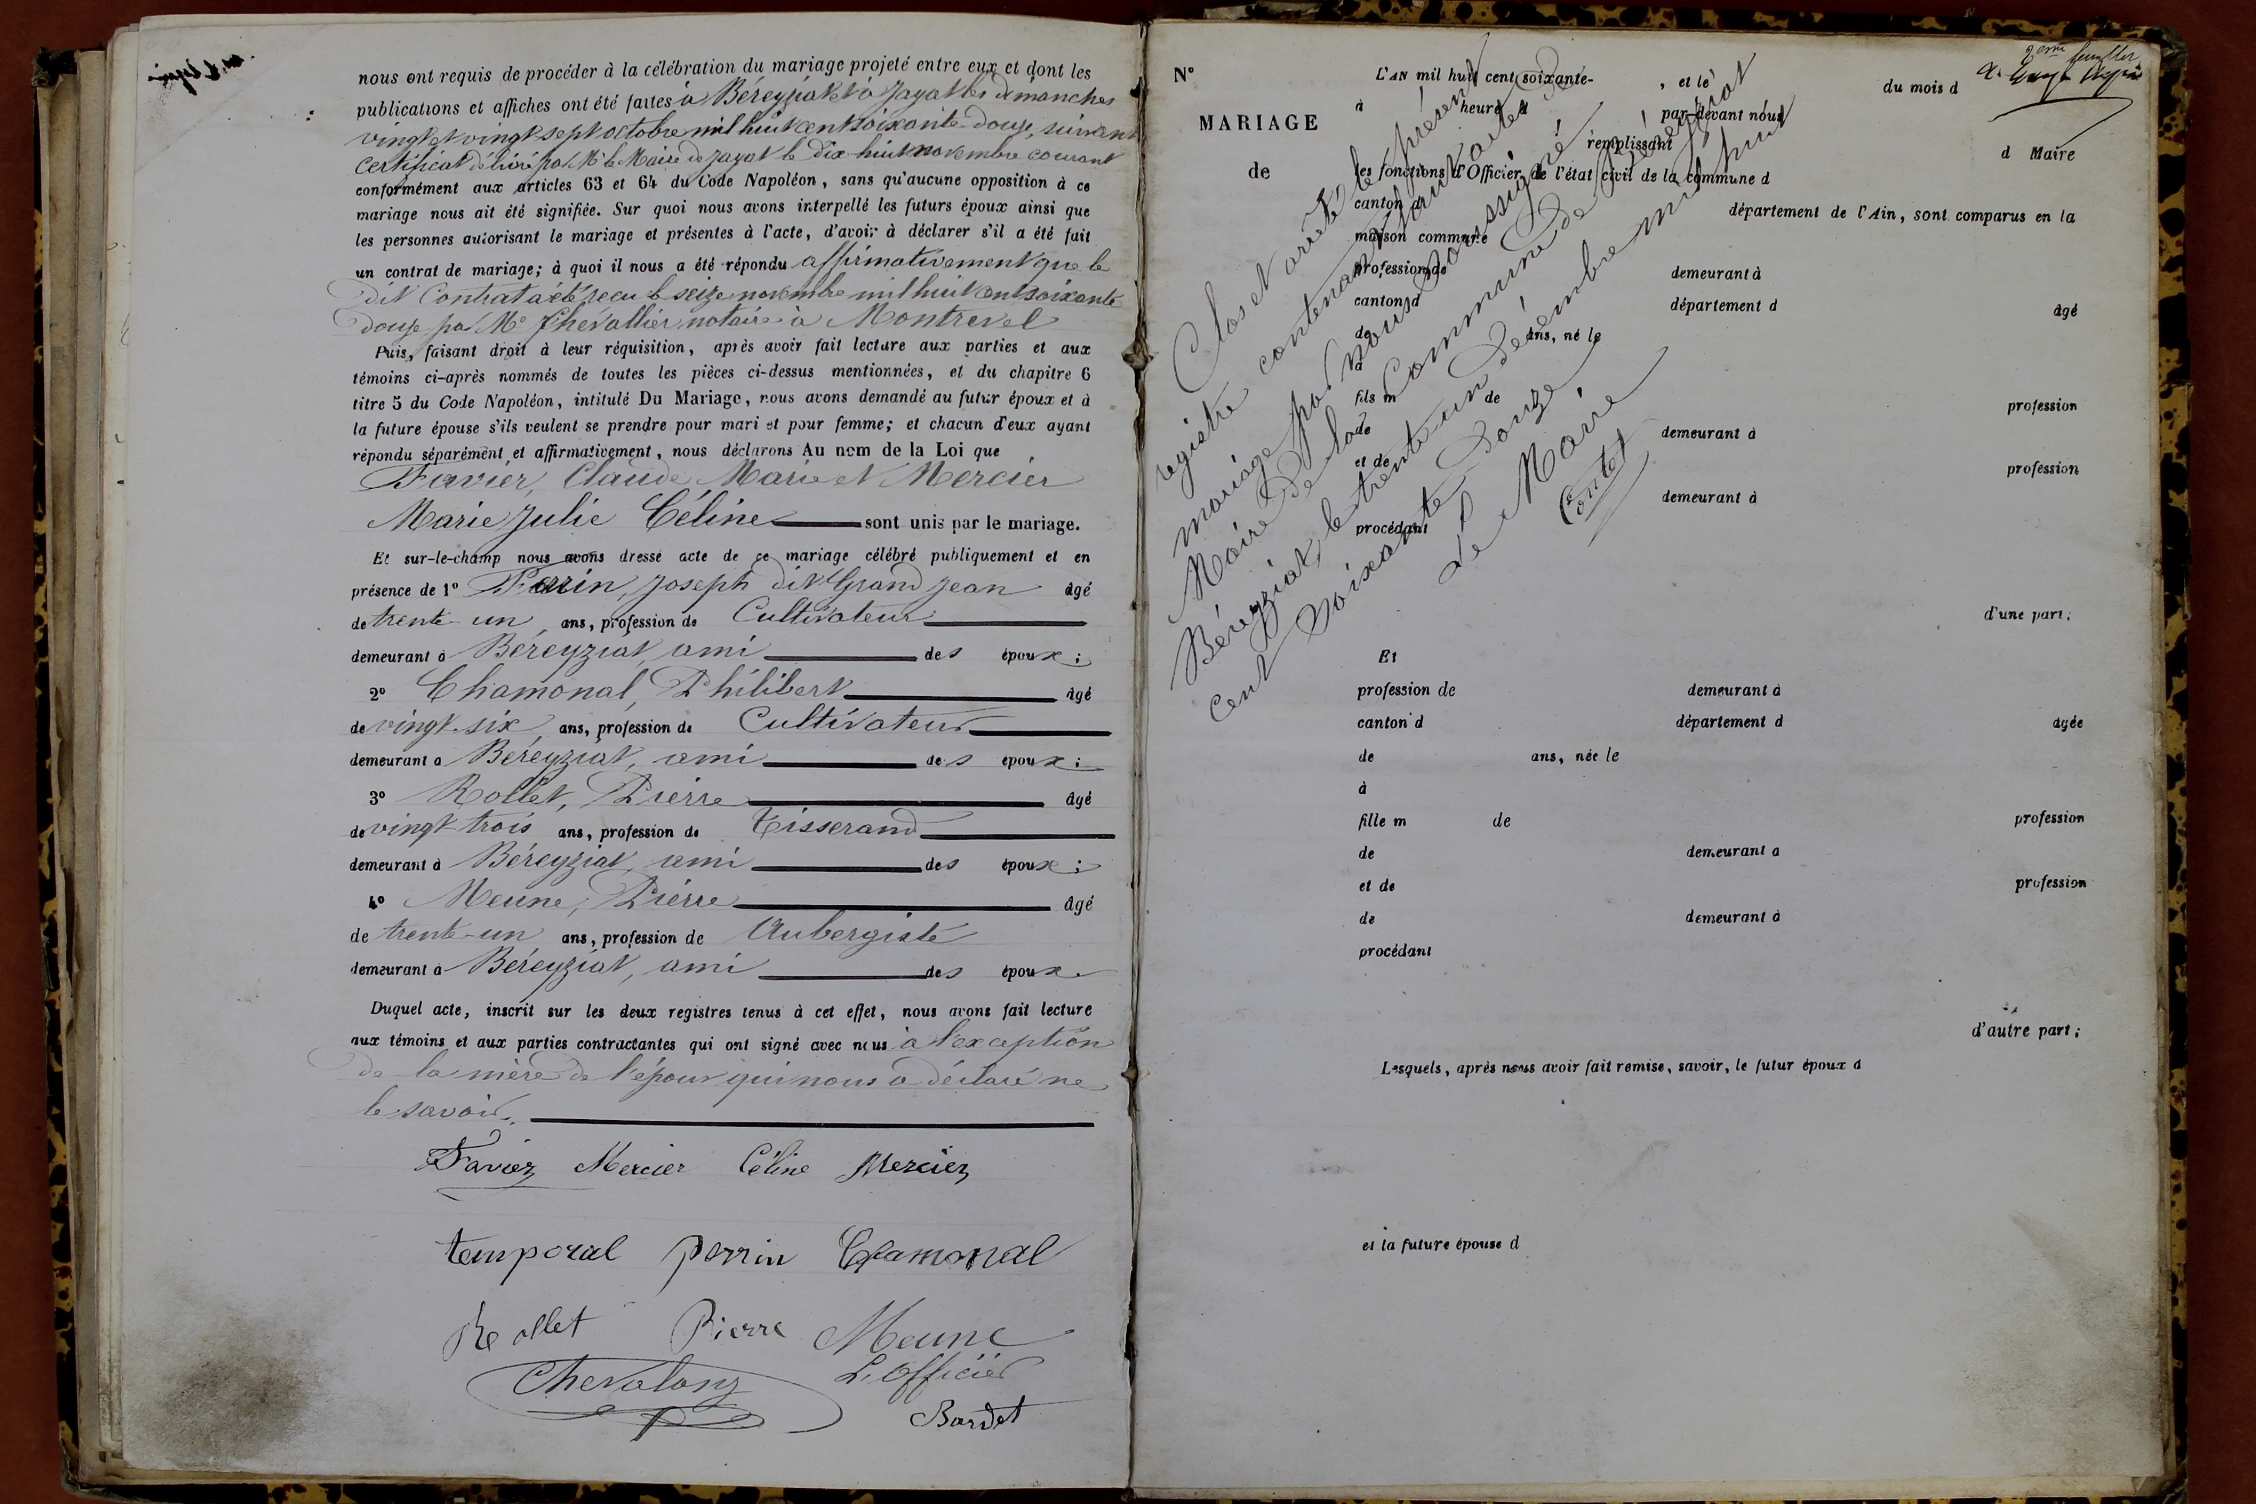 nous ont requis de procéder à la célébration du mariage projeté entre eux et dont les
publications et affiches ont été faites à Béreyziat et à Jayat les dimanches
vingt et vingt sept octobre mil huit cent soixante-douze, suivant
certificat délivré par Mr le Maire de Jayat le dix-huit novembre courant
conformément aux articles 63 et 64 du Code Napoléon, sans qu'aucune opposition à ce
mariage nous ait été signifiée. Sur quoi nous avons interpellé les futurs époux ainsi que
les personnes autorisant le mariage et présentes à l'acte, d'avoir à déclarer s'il a été fait
un contrat de mariage; à quoi il nous a été répondu affirmativement que le
dit Contrat a été reçu le seize novembre mil huit cent soixante
douze par Me Chevallier notaire à Montrevel
Puis, faisant droit à leur réquisition, après avoir fait lecture aux parties et aux
témoins ci-après nommés de toutes les pièces ci-dessus mentionnées, et du chapitre 6
titre 5 du Code Napoléon, intitulé Du Mariage, nous avons demandé au futur époux et à
la future épouse s'ils veulent se prendre pour mari et pour femme; et chacun d'eux ayant
répondu séparément et affirmativement, nous déclarons Au nom de la Loi que
Favier, Claude Marie et Mercier
Marie Julie Céline sont unis par le mariage.
Et sur-le-champ nous avons dressé acte de ce mariage célébré publiquement et en
présence de 1º Perrin, Joseph dit Grand Jean âgé
de trente un ans, profession de Cultivateur
demeurant à Béreyziat, ami des époux;
2º Chamonal, Philibert âgé
de vingt-six ans, profession de Cultivateur
demeurant à Béreyziat, ami des époux;
3º Rollet, Pierre âgé
de vingt trois ans, profession de Tisserand
demeurant à Béreyziat, ami des époux;
4º Meune, Pierre âgé
de trente-un ans, profession de Aubergiste
demeurant à Béreyziat, ami des époux
Duquel acte, inscrit sur les deux registres tenus à cet effet, nous avons fait lecture
aux témoins et aux parties contractantes qui ont signé avec nous à l'exception
de la mère de l'époux qui nous a déclaré ne
le savoir.
Favier Mercier Céline Mercier
temporal perrin Chamonal
Rollet Pierre Meune
Chevalony L'officier
Bardet
2eme feuillet
Nº
MARIAGE
de
L'AN mil huit cent soixante- , et le du mois d
à heure d par-devant nous
remplissant d Maire
les fonctions d'Officier de l'état civil de la commune d
canton d département de l'Ain, sont comparus en la
maison commune
profession de demeurant à
canton d département d âgé
de ans, né le
à
fils m de profession
de demeurant à
et de profession
de demeurant à
procédant
d'une part;
Et
profession de demeurant à
canton d département d âgée
de ans, née le
à
fille m de profession
de demeurant à
et de profession
de demeurant à
procédant
d'autre part;
Lesquels, après nous avoir fait remise, savoir, le futur époux d
et la future épouse d
Clos et arrêté le présent
registre contenant actes de
mariage par Nous soussigné
Maire de la Commune de Béreyziat
Béreyziat, le trente-un décembre mil huit
cent soixante douze
Le Maire
Contet